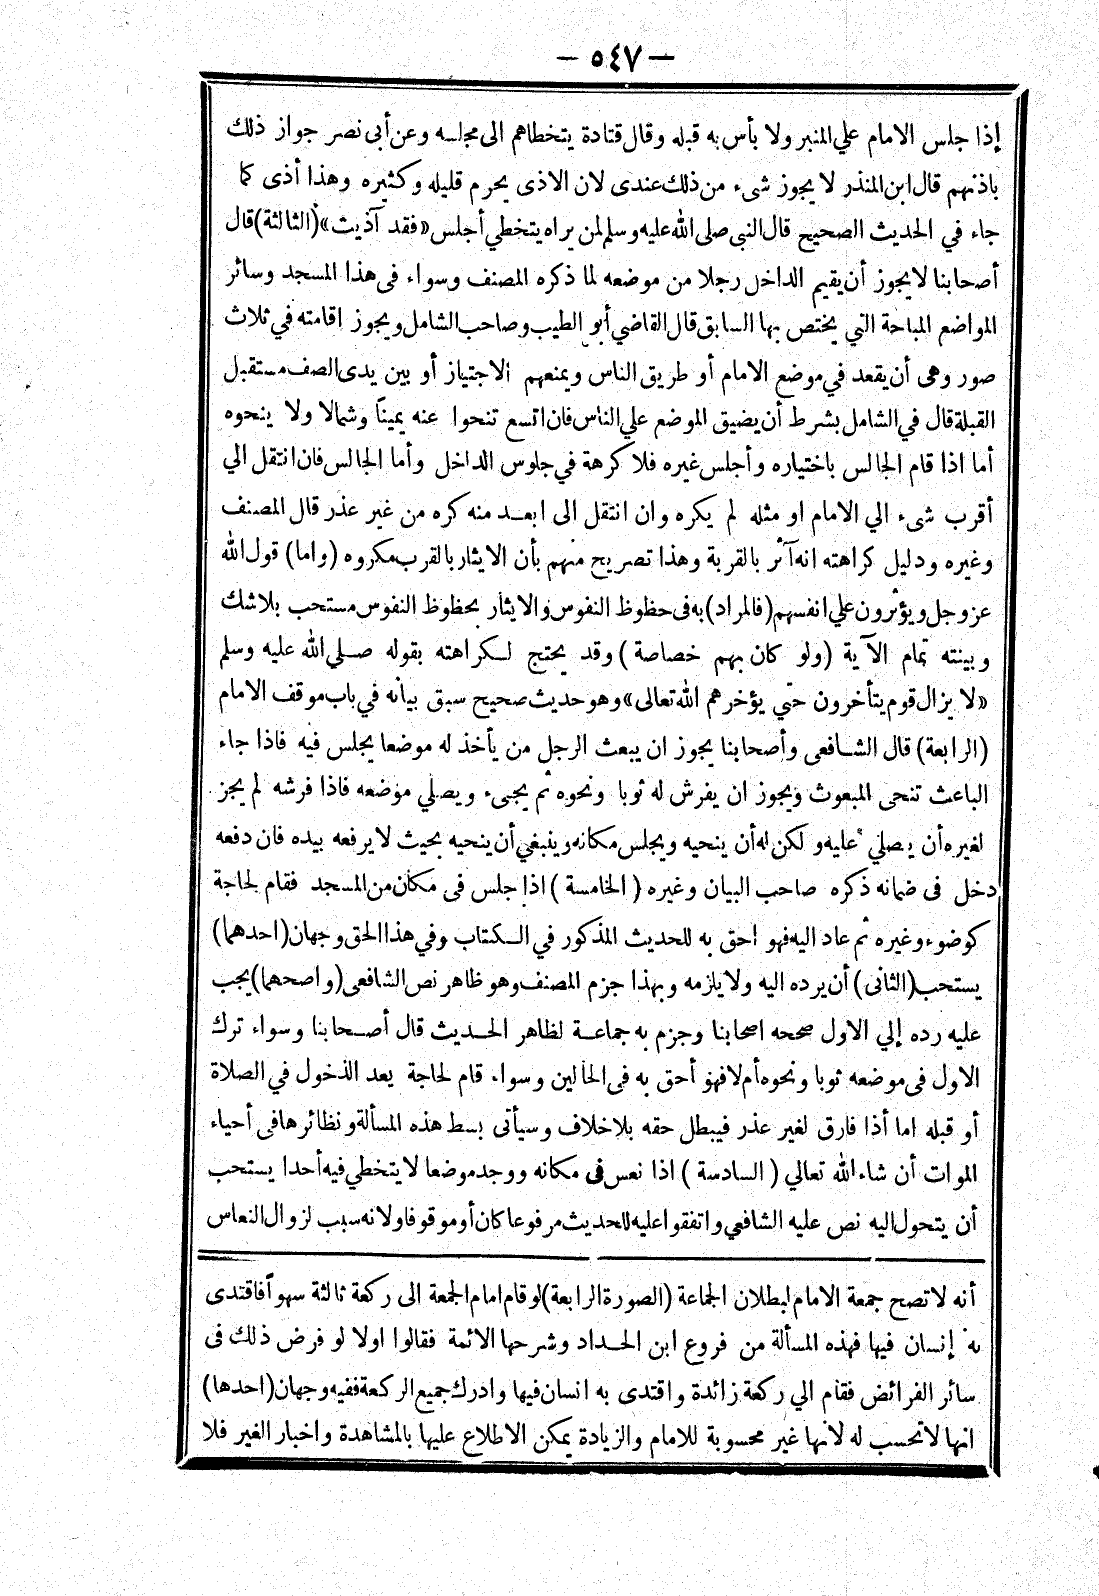 — ٥٤٧ —
إذا جلس الامام علي المنبر ولا بأس به قبله وقال قتادة يتخطاهم الى مجلسه وعن أبى نصر جواز ذلك
باذنهم قال ابن المنذر لا يجوز شىء من ذلك عندى لان الاذى يحرم قليله وكثيره وهذا أذى كما
جاء في الحديث الصحيح قال النبى صلى الله عليه وسلم لمن يراه يتخطي أجلس «فقد آذيت» (الثالثة) قال
أصحابنا لا يجوز أن يقيم الداخل رجلا من موضعه لما ذكره المصنف وسواء فى هذا المسجد وسائر
المواضع المباحة التي يختص بها السابق قال القاضي أبو الطيب وصاحب الشامل ويجوز اقامته في ثلاث
صور وهى أن يقعد في موضع الامام أو طريق الناس ويمنعهم الاجتياز أو بين يدى الصف مستقبل
القبلة قال في الشامل بشرط أن يضيق الموضع علي الناس فان اتسع تنحوا عنه يمينًا وشمالا ولا ينحوه
أما اذا قام الجالس باختياره وأجلس غيره فلا كرهة في جلوس الداخل وأما الجالس فان انتقل الي
أقرب شىء الي الامام او مثله لم يكره وان انتقل الى ابعد منه كره من غير عذر قال المصنف
وغيره ودليل كراهته انه آثر بالقربة وهذا تصريح منهم بأن الايثار بالقرب مكروه (واما) قول الله
عز وجل ويؤثرون علي انفسهم (فالمراد) به فى حظوظ النفوس والايثار بحظوظ النفوس مستحب بلا شك
وبينته تمام الآية (ولو كان بهم خصاصة) وقد يحتج لكراهته بقوله صلي الله عليه وسلم
«لا يزال قوم يتأخرون حتي يؤخرهم الله تعالى» وهو حديث صحيح سبق بيانه في باب موقف الامام
(الرابعة) قال الشافعى وأصحابنا يجوز ان يبعث الرجل من يأخذ له موضعا يجلس فيه فاذا جاء
الباعث تنحى المبعوث ويجوز ان يفرش له ثوبا ونحوه ثم يجىء ويصلي موضعه فاذا فرشه لم يجز
لغيره أن يصلي عليه ولكن له أن ينحيه ويجلس مكانه وينبغي أن ينحيه بحيث لا يرفعه بيده فان دفعه
دخل فى ضمانه ذكره صاحب البيان وغيره (الخامسة) اذا جلس فى مكان من المسجد فقام لحاجة
كوضوء وغيره ثم عاد اليه فهو احق به للحديث المذكور في الكتاب وفي هذا الحق وجهان (احدهما)
يستحب (الثانى) أن يرده اليه ولا يلزمه وبهذا جزم المصنف وهو ظاهر نص الشافعى (واصحهما) يجب
عليه رده إلي الاول صححه اصحابنا وجزم به جماعة لظاهر الحديث قال أصحابنا وسواء ترك
الاول فى موضعه ثوبا ونحوه أم لا فهو أحق به فى الحالين وسواء قام لحاجة يعد الذخول في الصلاة
أو قبله اما أذا فارق لغير عذر فيبطل حقه بلا خلاف وسيأتى بسط هذه المسألة ونظائرها فى أحياء
الموات أن شاء الله تعالي (السادسة) اذا نعس فى مكانه ووجد موضعا لا يتخطي فيه أحدا يستحب
أن يتحول اليه نص عليه الشافعي واتفقوا عليه للحديث مرفوعا كان أو موقوفا ولانه سبب لزوال النعاس
أنه لا تصح جمعة الامام لبطلان الجماعة (الصورة الرابعة) لو قام امام الجمعة الى ركعة ثالثة سهوا فاقتدى
به إنسان فيها فهذه المسألة من فروع ابن الحداد وشرحها الائمة فقالوا اولا لو فرض ذلك فى
سائر الفرائض فقام الي ركعة زائدة واقتدى به انسان فيها وادرك جميع الركعة ففيه وجهان (احدها)
انها لا تحسب له لانها غير محسوبة للامام والزيادة يمكن الاطلاع عليها بالمشاهدة واخبار الغير فلا